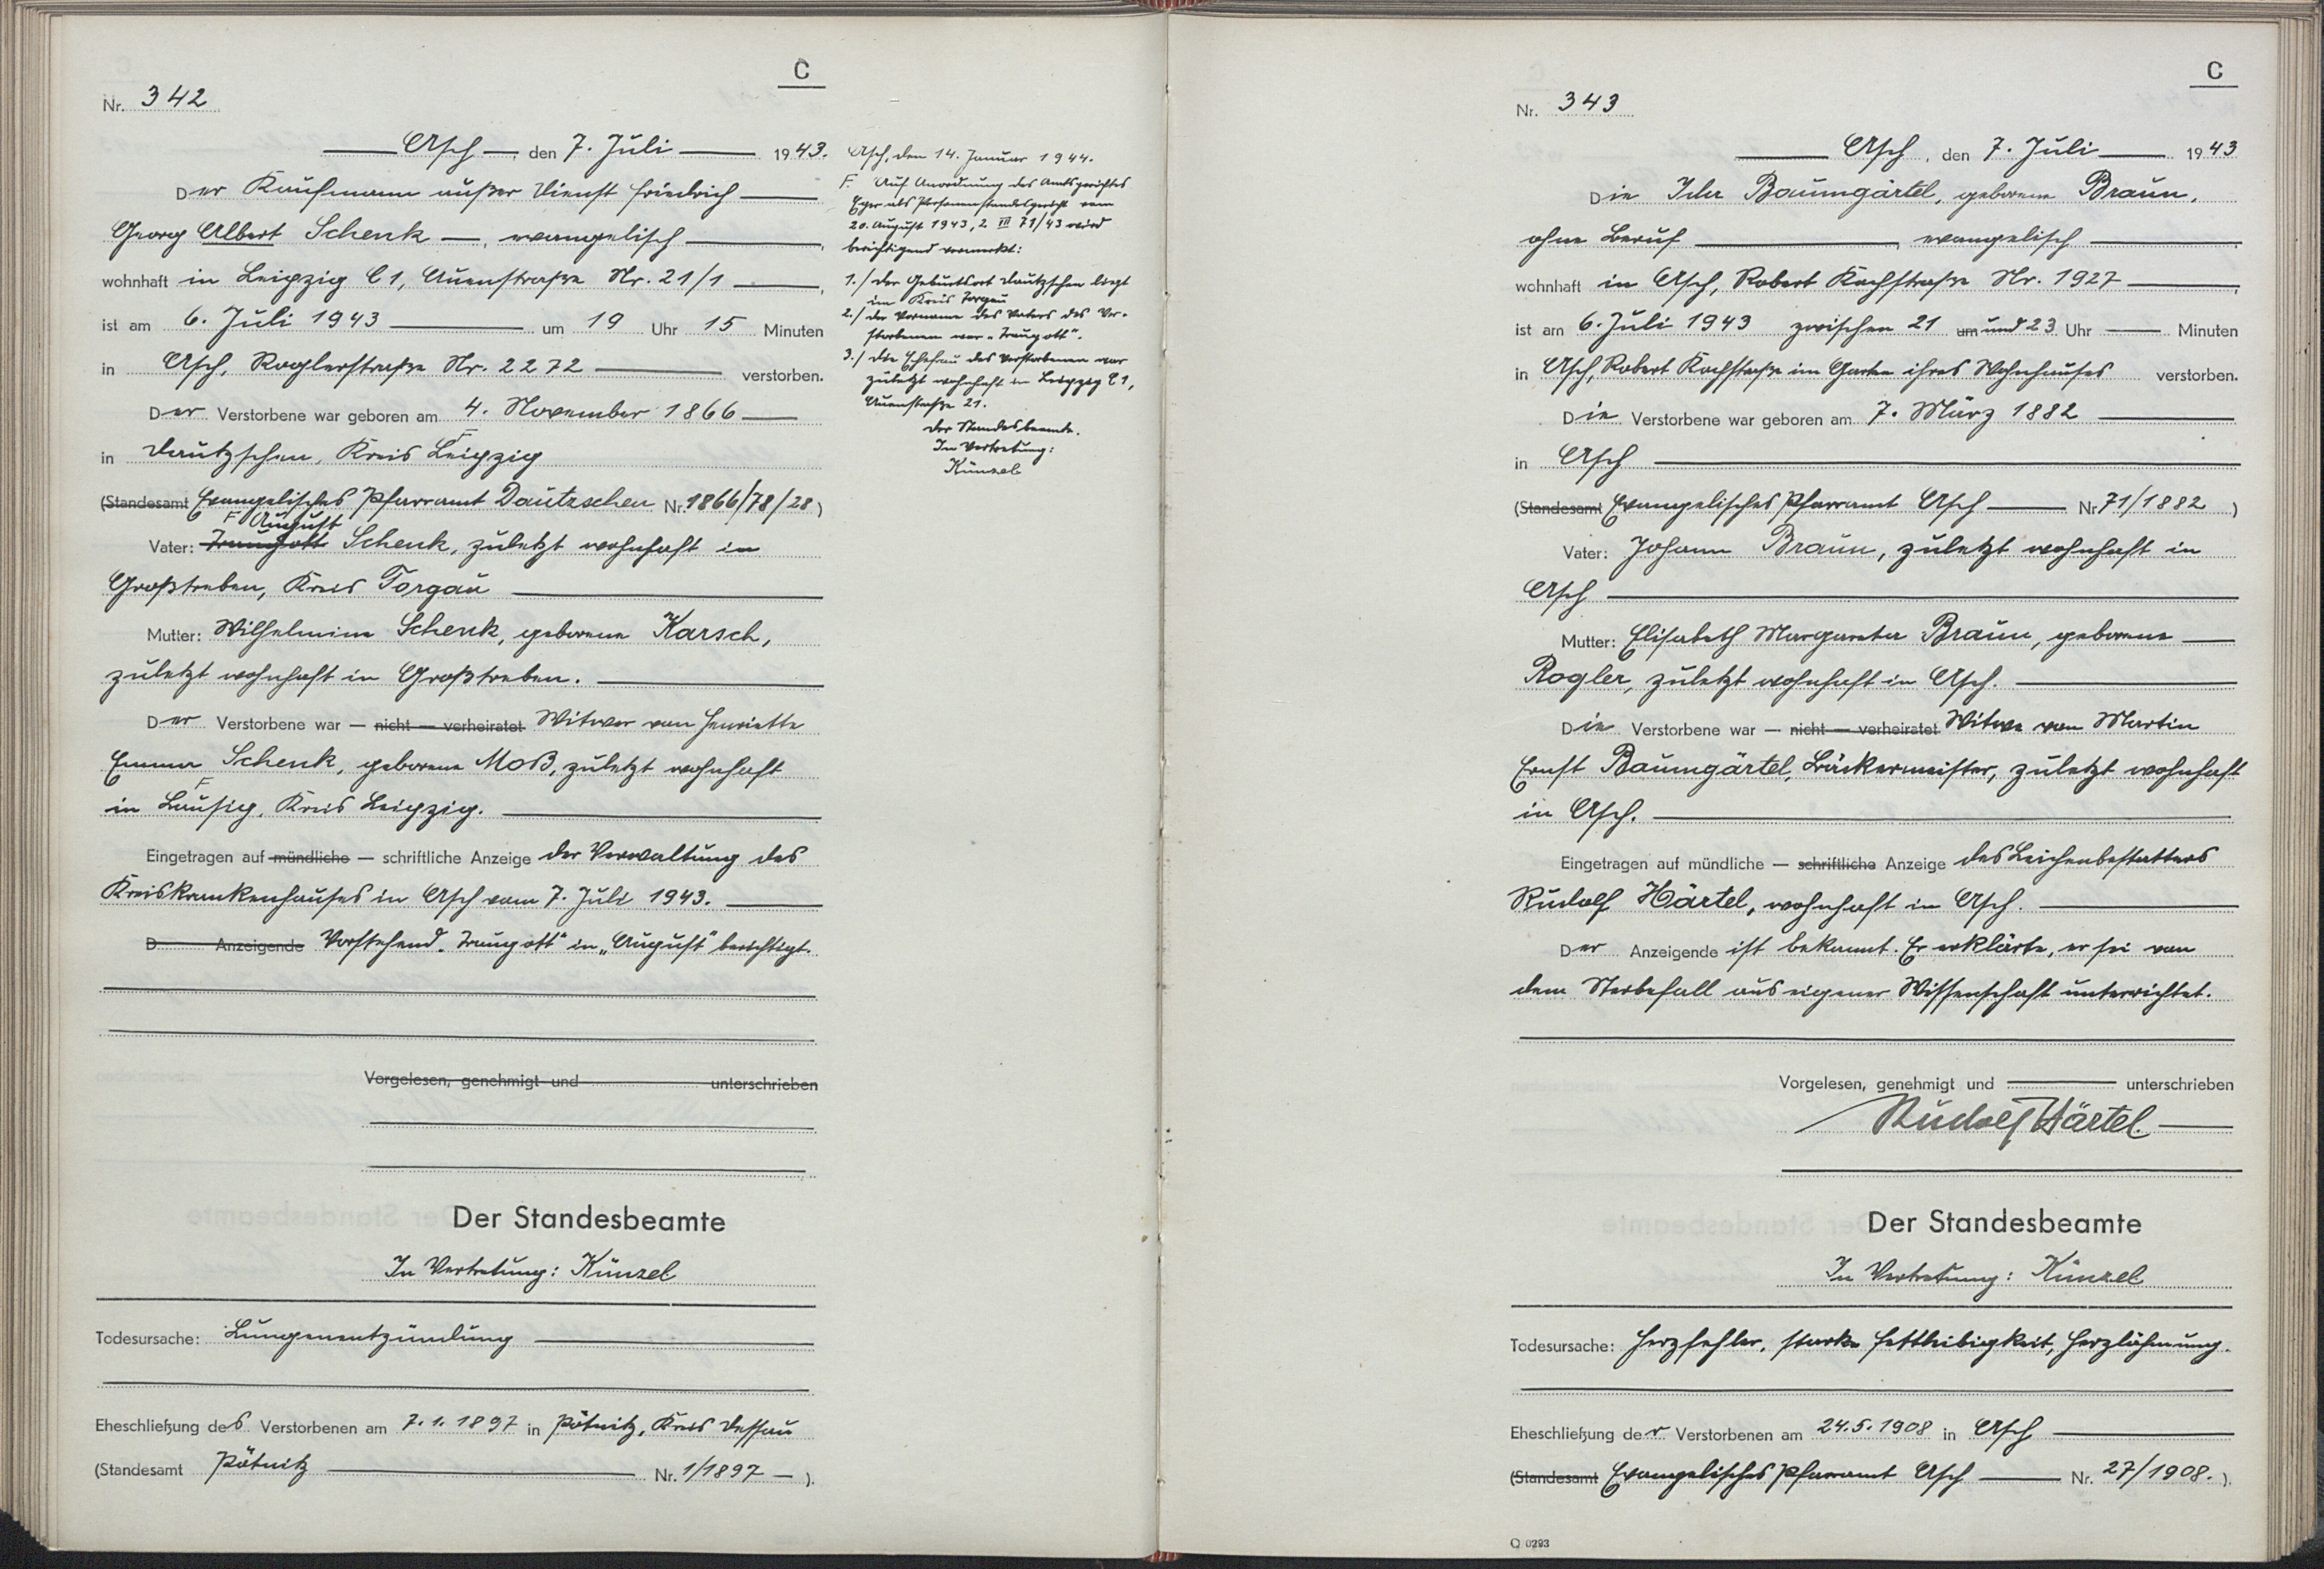 C
Nr. 342
Asch, den 7. Juli 1943.
Der Kaufmann außer Dienst Friedrich
Georg Albert Schenk —, evangelisch —,
wohnhaft in Leipzig C1, Auenstraße Nr. 21/1 —,
ist am 6. Juli 1943 — um 19 Uhr 15 Minuten
in Asch, Roglerstraße Nr. 2272 — verstorben.
Der Verstorbene war geboren am 4. November 1866 —
F
in Dautzschen, Kreis Leipzig
(Standesamt Evangelisches Pfarramt Dautzschen Nr. 1866/78/28)
F August
Vater: Traugott Schenk, zuletzt wohnhaft in
Großtreben, Kreis Torgau —
Mutter: Wilhelmine Schenk, geborene Karsch,
zuletzt wohnhaft in Großtreben. —
Der Verstorbene war — nicht — verheiratet Witwer von Henriette
Emma Schenk, geborene Moß, zuletzt wohnhaft
F
in Lausig, Kreis Leipzig. —
Eingetragen auf mündliche — schriftliche Anzeige der Verwaltung des
Kreiskrankenhauses in Asch vom 7. Juli 1943. —
D Anzeigende Vorstehend „Traugott“ in „August“ berichtigt.
Vorgelesen, genehmigt und unterschrieben
Der Standesbeamte
In Vertretung: Künzel
Todesursache: Lungenentzündung —
Eheschließung des Verstorbenen am 7.1.1897 in Pötnitz, Kreis Dessau
(Standesamt Pötnitz — Nr. 1/1897 —).
Asch, den 14. Januar 1944.
F. Auf Anordnung des Amtsgerichtes
Eger als Personenstandsgericht vom
20. August 1943, 2 III 71/43 wird
berichtigend vermerkt:
1./ Der Geburtsort Dautzschen liegt
im Kreis Torgau
2./ der Vorname des Vaters des Ver-
storbenen war „Traugott“.
3./ Die Ehefrau des Verstorbenen war
zuletzt wohnhaft in Leipzig C1,
Auenstraße 21.
Der Standesbeamte.
In Vertretung:
Künzel
C
Nr. 343
Asch, den 7. Juli 1943
Die Ida Baumgärtel, geborene Braun,
ohne Beruf —, evangelisch —,
wohnhaft in Asch, Robert Kochstraße Nr. 1927 —,
ist am 6. Juli 1943 zwischen 21 um und 23 Uhr — Minuten
in Asch, Robert Kochstraße im Garten ihres Wohnhauses verstorben.
Die Verstorbene war geboren am 7. März 1882 —
in Asch —
(Standesamt Evangelisches Pfarramt Asch — Nr. 71/1882)
Vater: Johann Braun, zuletzt wohnhaft in
Asch —
Mutter: Elisabeth Margareta Braun, geborene —
Rogler, zuletzt wohnhaft in Asch. —
Die Verstorbene war — nicht — verheiratet Witwe von Martin
Ernst Baumgärtel, Bäckermeister, zuletzt wohnhaft
in Asch. —
Eingetragen auf mündliche — schriftliche Anzeige des Leichenbestatters
Rudolf Härtel, wohnhaft in Asch. —
Der Anzeigende ist bekannt. Er erklärte, er sei von
dem Sterbefall aus eigener Wissenschaft unterrichtet.
Vorgelesen, genehmigt und — unterschrieben
Rudolf Härtel. —
Der Standesbeamte
In Vertretung: Künzel
Todesursache: Herzfehler, starke Fettleibigkeit, Herzlähmung.
Eheschließung der Verstorbenen am 24.5.1908 in Asch —
(Standesamt Evangelisches Pfarramt Asch — Nr. 27/1908.).
Q 0293